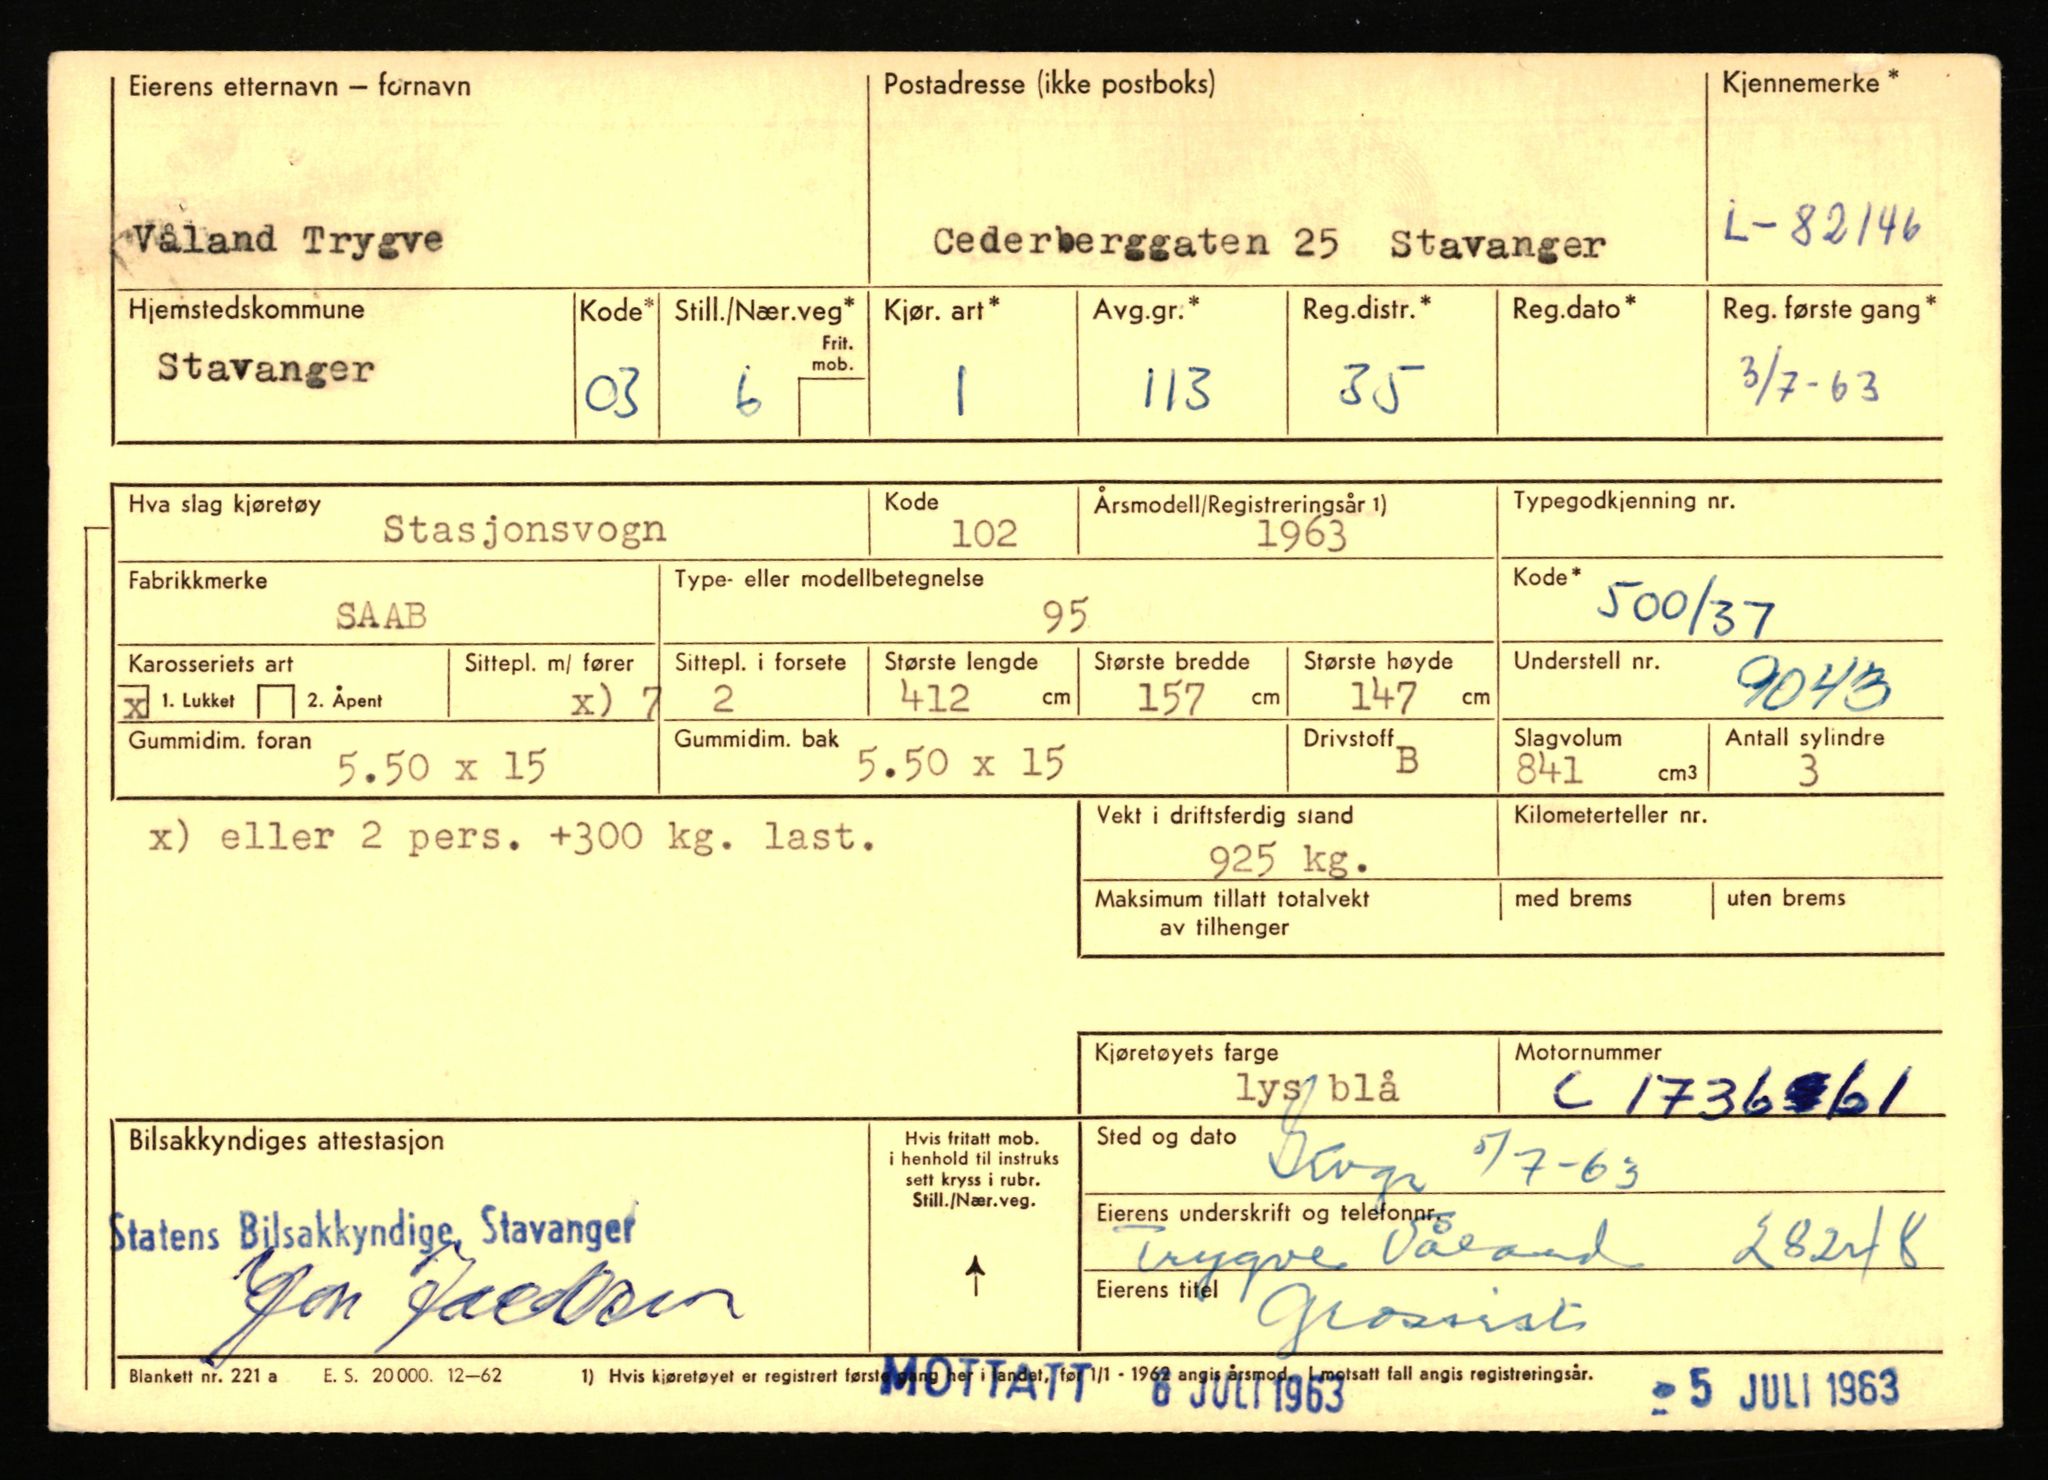 Eierens etternavn – fornavn Postadresse (ikke postboks) Kjennemerke*
Våland Trygve Cederberggaten 25 Stavanger L-82146
Hjemstedskommune Kode* Still./Nær.veg* Kjør. art* Avg.gr.* Reg.distr.* Reg.dato* Reg. første gang*
Frit. mob.
Stavanger 03 6 1 113 35 3/7-63
Hva slag kjøretøy Kode Årsmodell/Registreringsår 1) Typegodkjenning nr.
Stasjonsvogn 102 1963
Fabrikkmerke Type- eller modellbetegnelse Kode*
SAAB 95 500/37
Karosseriets art Sittepl. m/ fører Sittepl. i forsete Største lengde Største bredde Største høyde Understell nr.
x 1. Lukket 2. Åpent x) 7 2 412 cm 157 cm 147 cm 9043
Gummidim. foran Gummidim. bak Drivstoff Slagvolum Antall sylindre
5.50 x 15 5.50 x 15 B 841 cm3 3
x) eller 2 pers. +300 kg. last.
Vekt i driftsferdig stand Kilometerteller nr.
925 kg.
Maksimum tillatt totalvekt av tilhenger med brems uten brems
Kjøretøyets farge Motornummer
lys blå C 1736 61
Bilsakkyndiges attestasjon
Hvis fritatt mob.
i henhold til instruks
sett kryss i rubr.
Still./Nær.veg.
Sted og dato
5/7-63
Statens Bilsakkyndige, Stavanger
Eierens underskrift og telefonnr.
Trygve Våland
Eierens titel
Grossist
Blankett nr. 221 a E. S. 20 000. 12–62 1) Hvis kjøretøyet er registrert første gang her i landet, før 1/1 - 1962 angis årsmod. I motsatt fall angis registreringsår.
MOTTATT 8 JULI 1963 - 5 JULI 1963